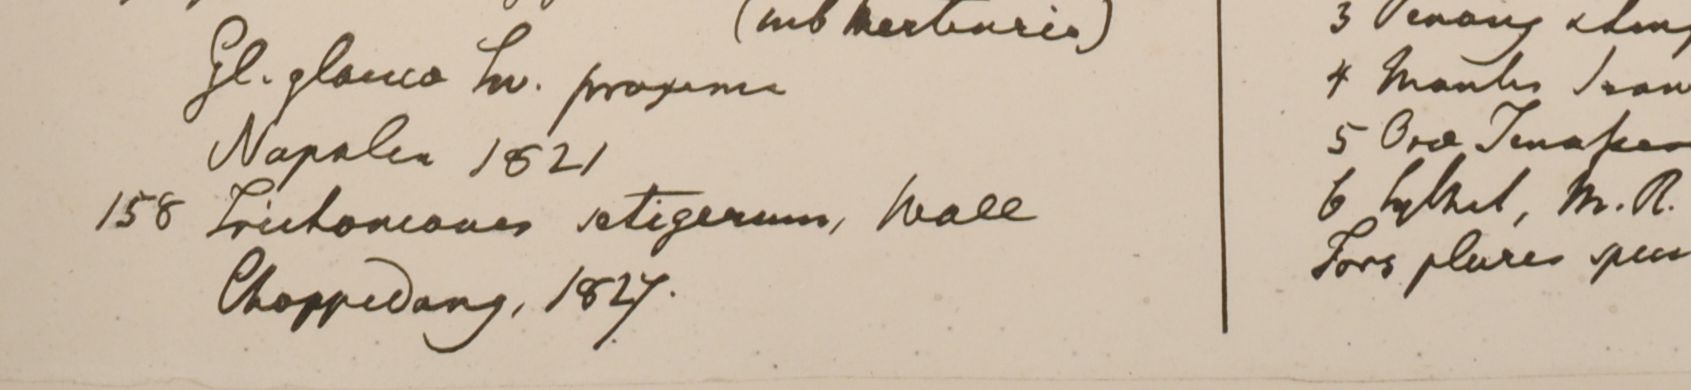 (sub Mertensia)
Gl. glauca Sw. proxima
Napalia 1821
158 Trichomanes setigerum, Wall
Choppedong, 1827.
3 Penang
4 Montes
5 Ora Tenasser
6 Sylhet, M. R.
Fors plures spec